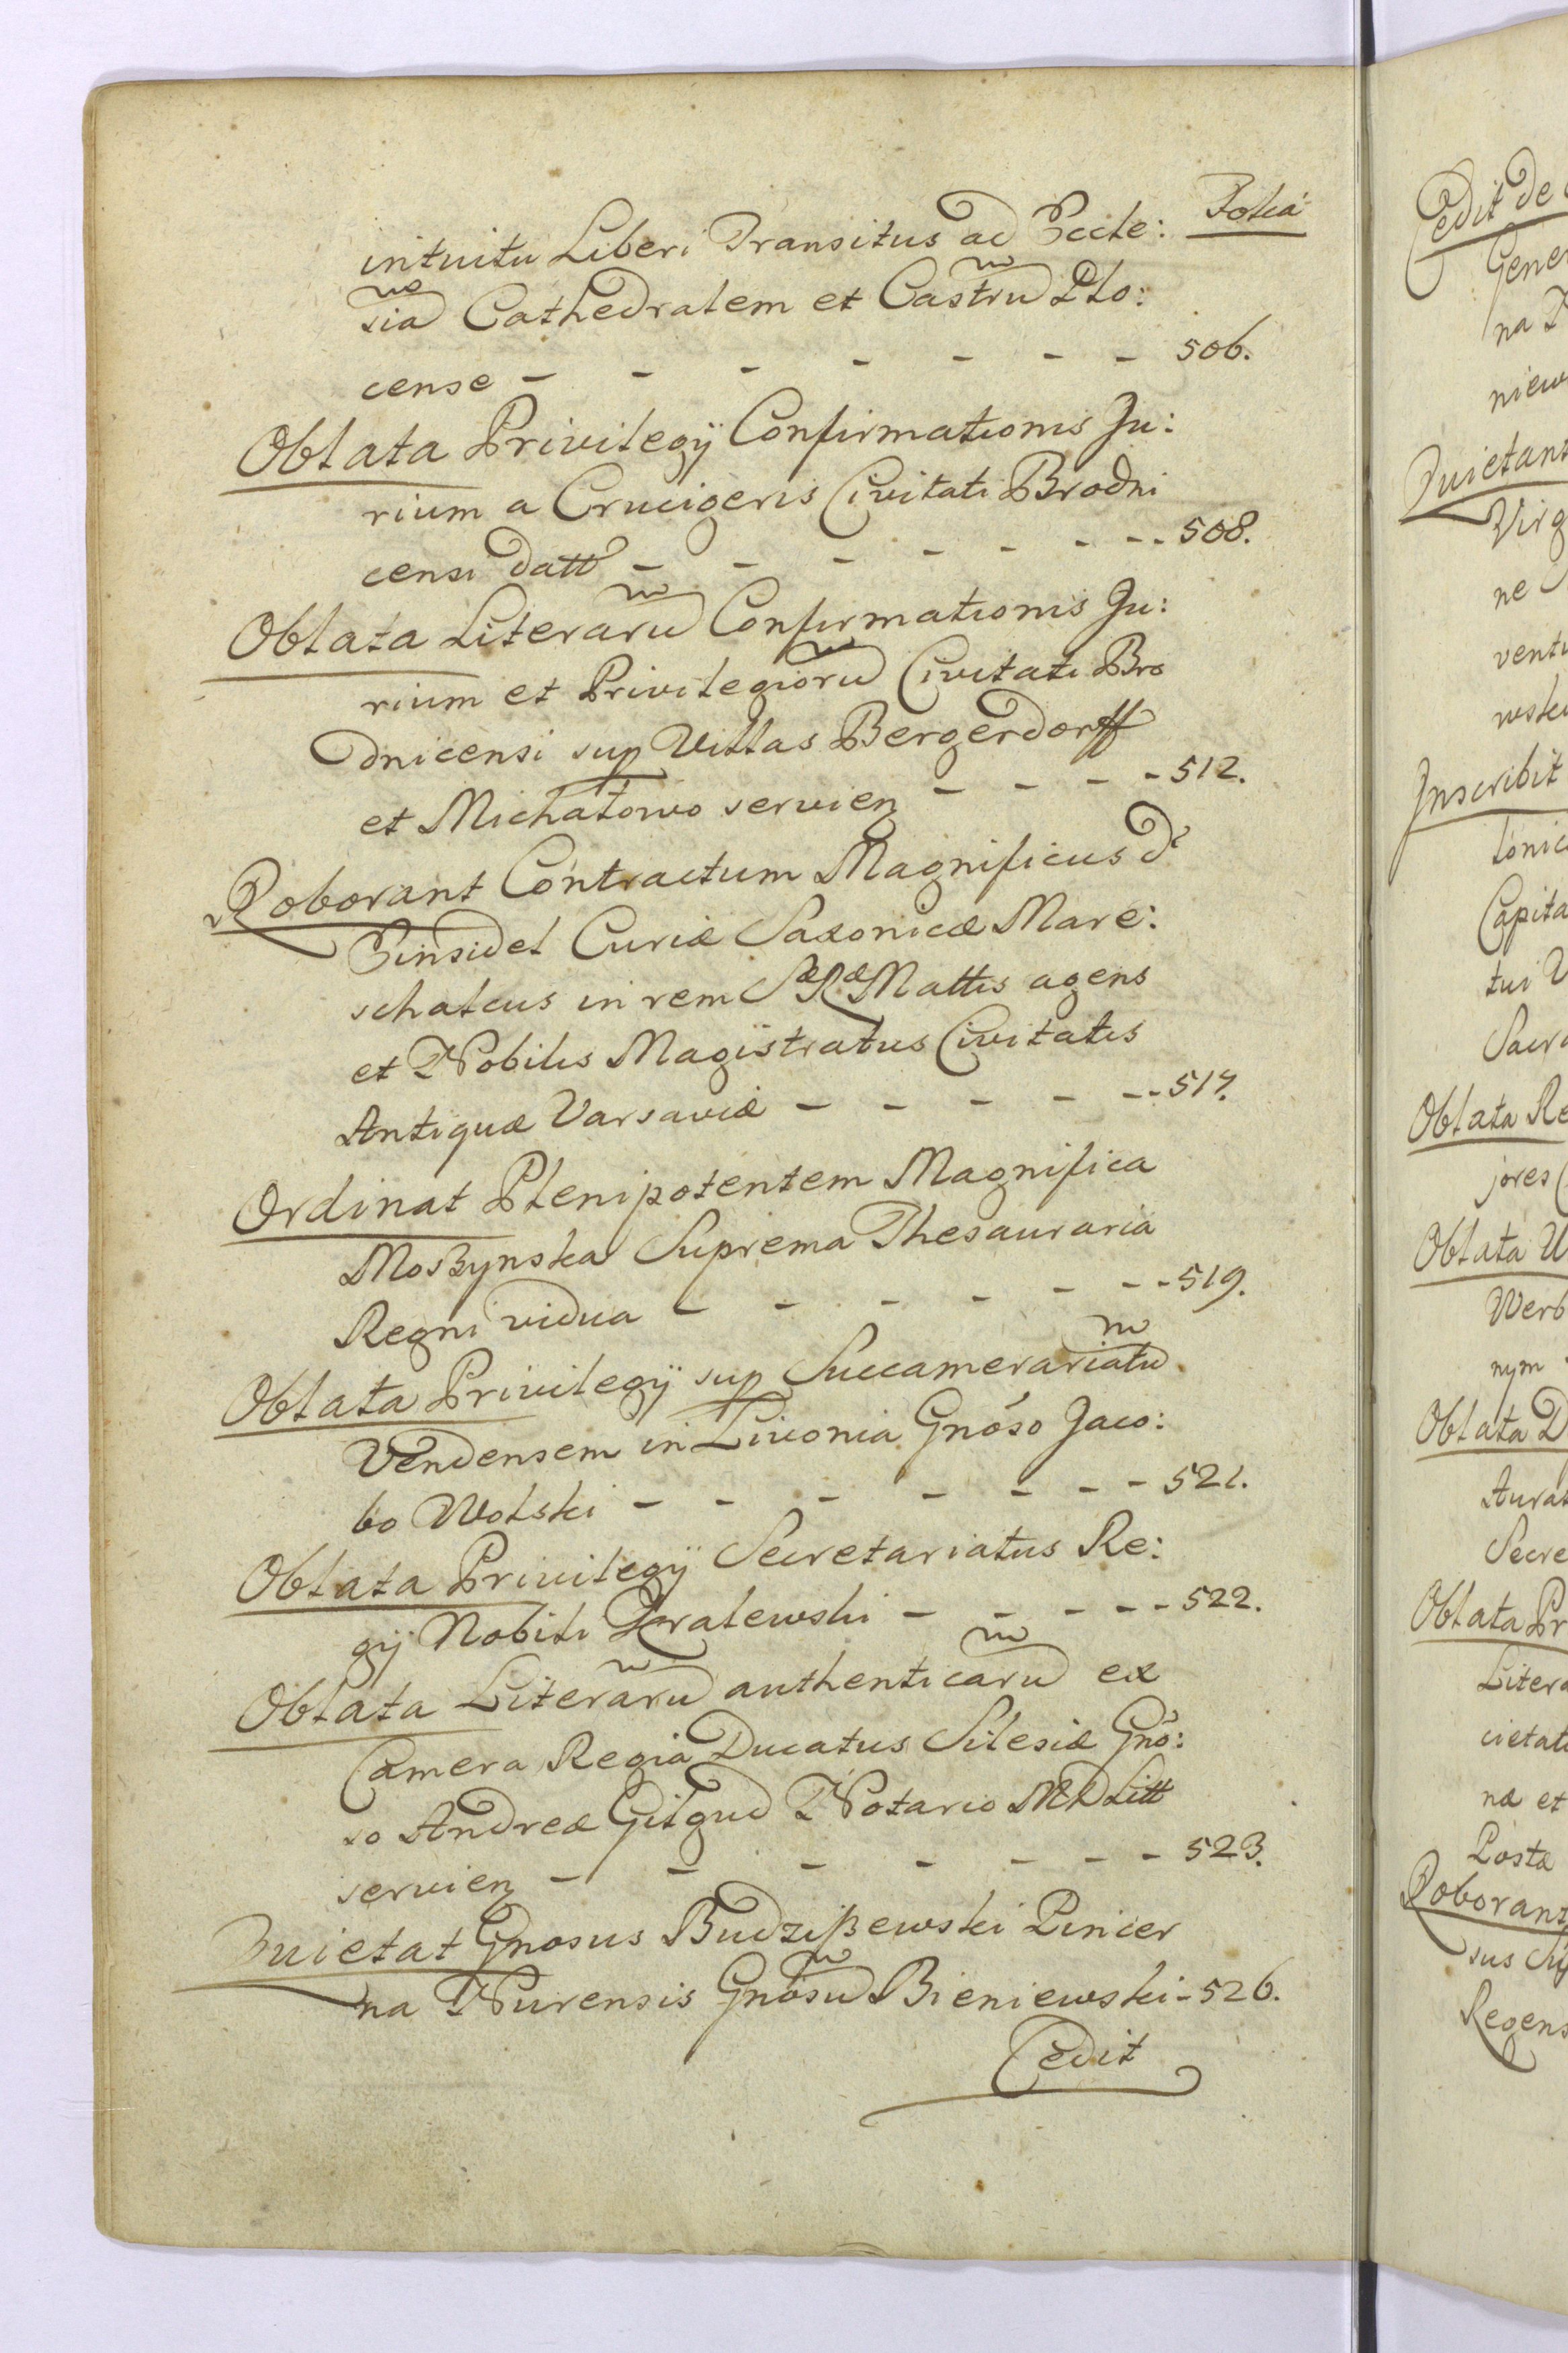 Folia
intuitu Liberi Transitus ad Eccle:
siã Cathedralem et Castrũ Plo:
cense - - - - - - - 506.
Oblata Privilegÿ Confirmationis Ju:
rium a Crucigeris Civitati Brodni
censi datt - - - - - - - 508.
Oblata Literarũ Confirmationis Ju:
rium et Privilegiorũ Civitati Bro
dnicensi sup Villas Bergerdorff
et Michałowo servien - - - - 512.
Roborant Contractum Magnificus d
Einsidel Curiæ Saxonicæ Mare:
schalcus in rem SæRæMattis agens
et Nobilis Magistratus Civitatis
Antiquæ Varsaviæ - - - - - - 517.
Ordinat Plenipotentem Magnifica
Moszynska Suprema Thesauraria
Regni vidua - - - - - - 519.
Oblata Privilegÿ sup Succamerariatũ
Vendensem in Livonia Gnoso Jaco:
bo Wolski - - - - - - - 521.
Oblata Privilegÿ Secretariatus Re:
gÿ Nobili Kralewski - - - - - 522.
Oblata Literarũ authenticarũ ex
Camera Regia Ducatus Silesiæ Gno:
so Andreæ Gilgud Notario MD Litt
servien - - - - - - - 523.
Quietat Gnosus Budziszewski Pincer
na Nurensis Gnosũ Bieniewski - 526.
Cedit
Cedit de
Gener
na
niew
Quietant
Virg
ne
ventu
wski
Inscribit
tonic
Capita
tui
Sacr
Oblata Re
jores
Oblata
Werb
nym
Oblata D
Aurat
Secre
Oblata Pr
Litera
cietat
næ et
Postæ
Roborant
sus
Regens